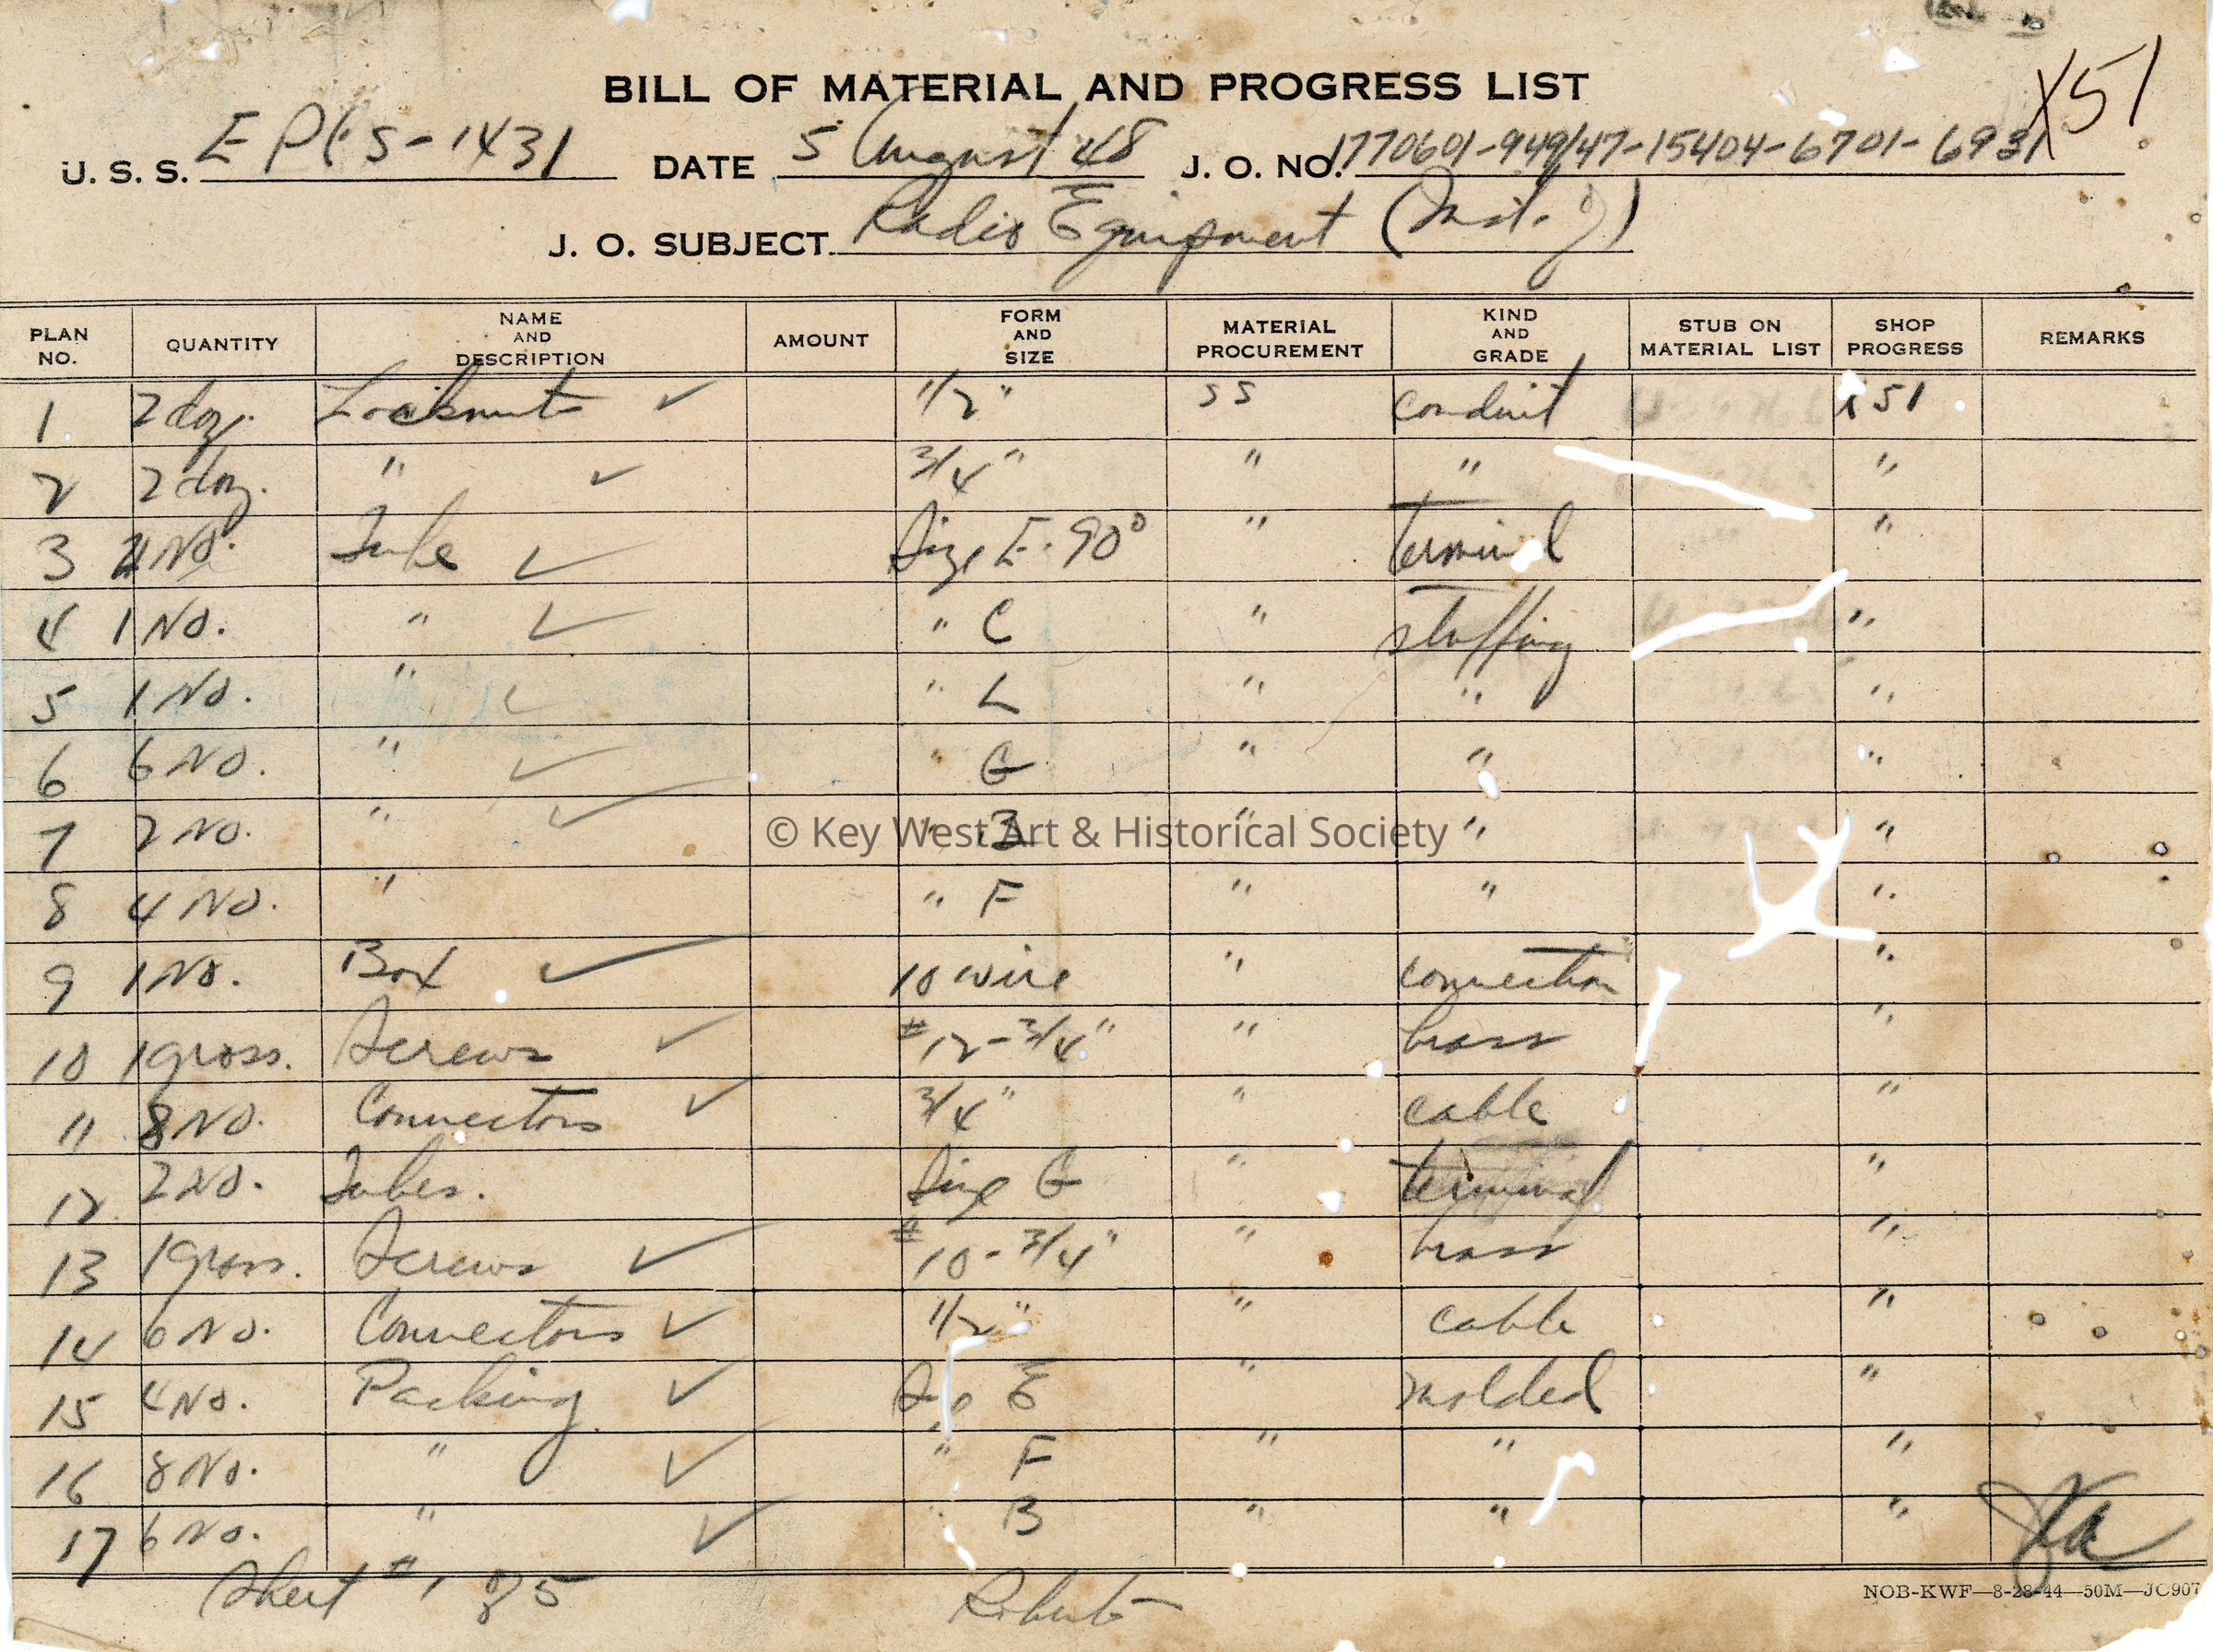 X51
BILL OF MATERIAL AND PROGRESS LIST
U. S. S. EPCS-1431 DATE 5 August 48 J. O. NO. 1770601-949/47-15404-6701-6931
J. O. SUBJECT Radio Equipment (Inst. of)
PLAN NO. QUANTITY NAME AND DESCRIPTION AMOUNT FORM AND SIZE MATERIAL PROCUREMENT KIND AND GRADE STUB ON MATERIAL LIST SHOP PROGRESS REMARKS
1. 2 doz. Locknuts ✓ 1/2" SS conduit X51
2 2 doz. " ✓ 3/4" " " "
3 NO. Tube ✓ Size E-90° " terminal "
4 1 NO. " ✓ " C " stuffing "
5 1 NO. " ✓ " L " " "
6 6 NO. " ✓ " G " " "
7 2 NO. " ✓ " B " " "
8 4 NO. " " F " " "
9 1 NO. Box ✓ 10 wire " connection "
10 1 gross. Screws ✓ #12-3/4" " brass "
11 8 NO. Connectors ✓ 3/4" " cable "
12 2 NO. Tubes. Size G " terminal "
13 1 gross. Screws ✓ #10-3/4" " brass "
14 6 No. Connectors ✓ 1/2" " cable "
15 4 NO. Packing ✓ E " molded "
16 8 No. " ✓ " F " " "
17 6 No. " ✓ " B " " "
Sheet #1 of 5 Roberts
NOB-KWF—8-28-44—50M—JO907
© Key West Art & Historical Society